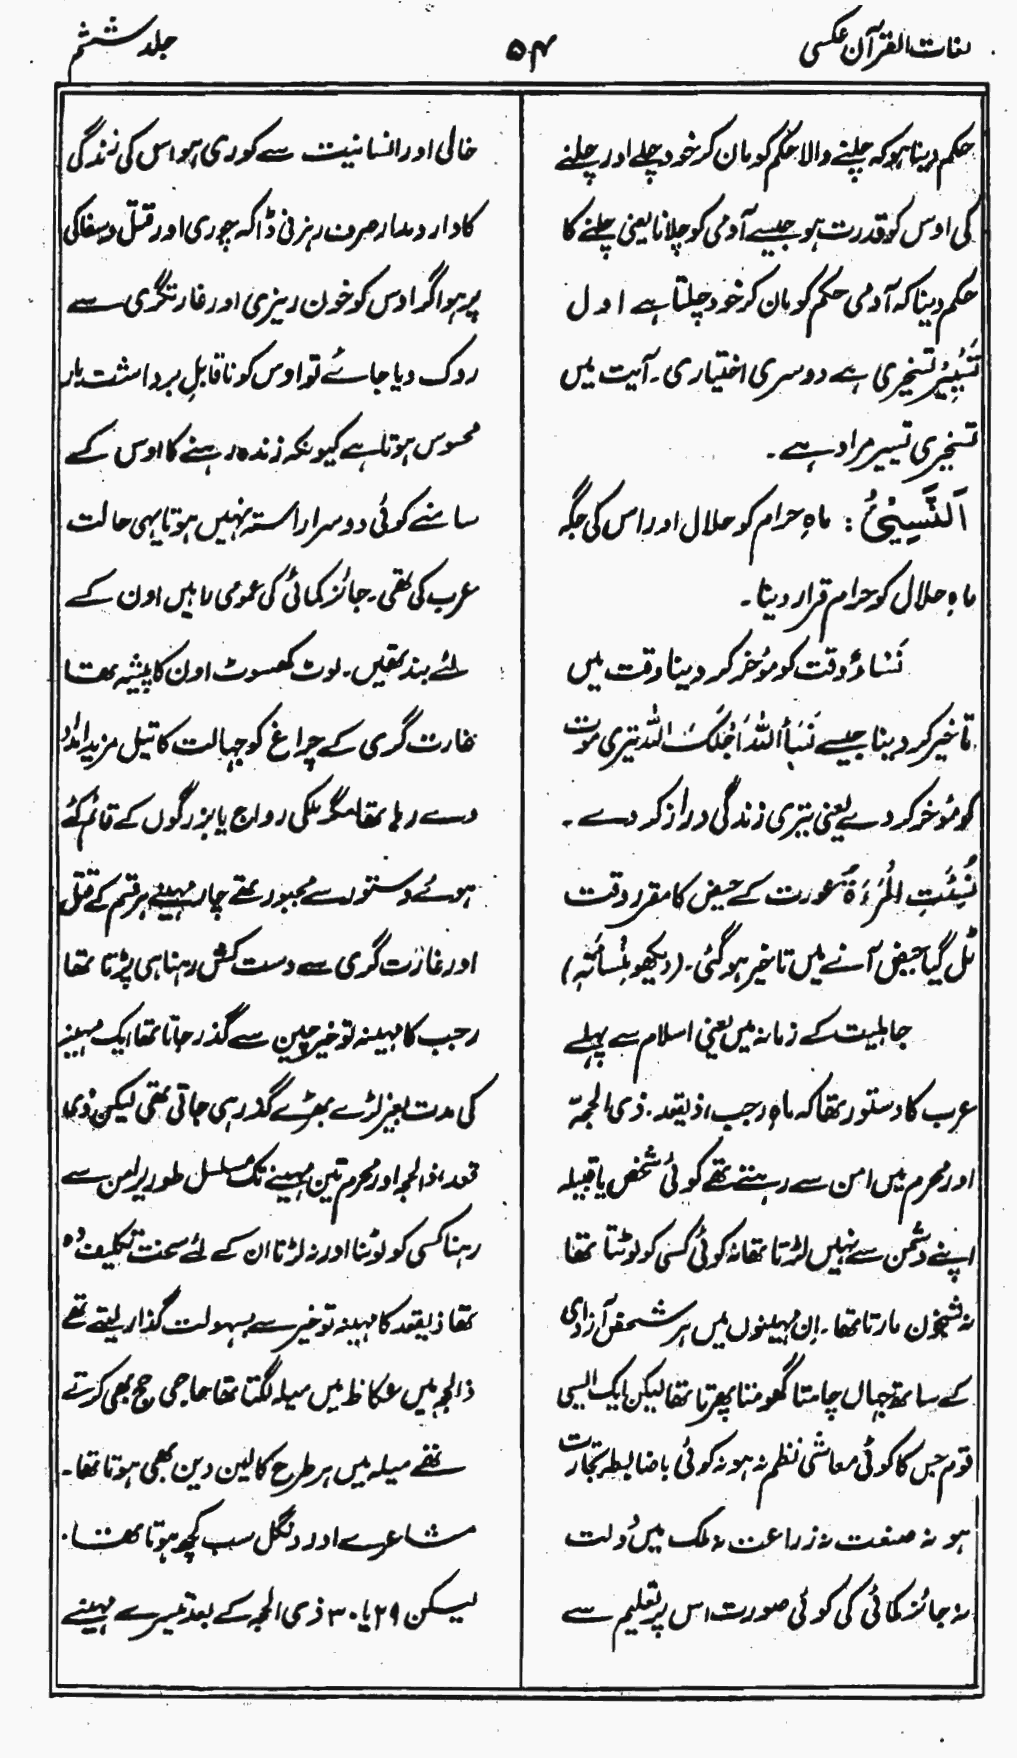 لغات القرآن عکسی
۵۴
جلد ششم
حکم دینا ہو کہ چلنے والا حکم کو مان کر خود چلے اور چلنے
کی اوس کو قدرت ہو جیسے آدمی کو چلانا یعنی چلنے کا
حکم دینا کہ آدمی حکم کو مان کر خود چلتا ہے اول
تَسْیِیْر تسخیری ہے دوسری اختیاری۔ آیت میں
تسخیری تسییر مراد ہے۔
اَلنَّسِیْیُٔ : ماہِ حرام کو حلال اور اس کی جگہ
ماہِ حلال کو حرام قرار دینا۔
نَسَاءٌ وقت کو مؤخر کر دینا وقت میں
تاخیر کر دینا جیسے نَسَأَ اللّٰهُ اَجَلَكَ اللہ تیری موت
کو مؤخر کر دے یعنی تیری زندگی دراز کر دے۔
نُسِئَتِ الْمَرْءَةُ عورت کے حیض کا مقرر وقت
ٹل گیا حیض آنے میں تاخیر ہو گئی۔ (دیکھو مِنْسَأَتَہٗ)
جاہلیت کے زمانہ میں یعنی اسلام سے پہلے
عرب کا دستور تھا کہ ماہِ رجب، ذیقعد۔ ذی الحجہ
اور محرم میں امن سے رہتے تھے کوئی شخص یا قبیلہ
اپنے دشمن سے نہیں لڑتا تھا نہ کوئی کسی کو لوٹتا تھا
نہ شبخون مارتا تھا۔ اِن مہینوں میں ہر شخص آزادی
کے ساتھ جہاں چاہتا گھومتا پھرتا تھا لیکن ایک ایسی
قوم جس کا کوئی معاشی نظم نہ ہو نہ کوئی باضابطہ تجارت
ہو نہ صنعت نہ زراعت نہ ملک میں دولت
نہ جائز کمائی کی کوئی صورت اس پر تعلیم سے
خالی اور انسانیت سے کوری ہو اس کی زندگی
کا دار و مدار صرف رہزنی ڈاکہ چوری اور قتل و سفاکی
پر ہو اگر اوس کو خون ریزی اور غارتگری سے
روک دیا جائے تو اوس کو ناقابلِ برداشت بار
محسوس ہوتا ہے کیونکہ زندہ رہنے کا اوس کے
سامنے کوئی دوسرا راستہ نہیں ہوتا یہی حالت
عرب کی تھی۔ جائز کمائی کی عمومی راہیں اون کے
لئے بند تھیں۔ لوٹ کھسوٹ اون کا پیشہ تھا
غارت گری کے چراغ کو جہالت کا تیل مزید امداد
دے رہا تھا مگر ملکی رواج یا بزرگوں کے قائم کئے
ہوئے دستور سے مجبور تھے چار مہینے ہر قسم کے قتل
اور غارت گری سے دست کش رہنا ہی پڑتا تھا
رجب کا مہینہ تو خیر چین سے گذر جاتا تھا ایک مہینہ
کی مدت بغیر لڑے بھڑے گذر ہی جاتی تھی لیکن ذی
قعد، ذالحجہ اور محرم تین مہینے تک مسلسل طور پر امن سے
رہنا کسی کو لوٹنا اور نہ لڑنا ان کے لئے سخت تکلیف دہ
تھا ذیقعد کا مہینہ تو خیر سے بسہولت گذار لیتے تھے
ذالحجہ میں عکاظ میں میلہ لگتا تھا حاجی حج بھی کرتے
تھے میلہ میں ہر طرح کا لین دین بھی ہوتا تھا۔
مشاعرے اور دنگل سب کچھ ہوتا تھا۔
لیکن ۲۹ یا ۳۰ ذی الحجہ کے بعد تیسرے مہینے